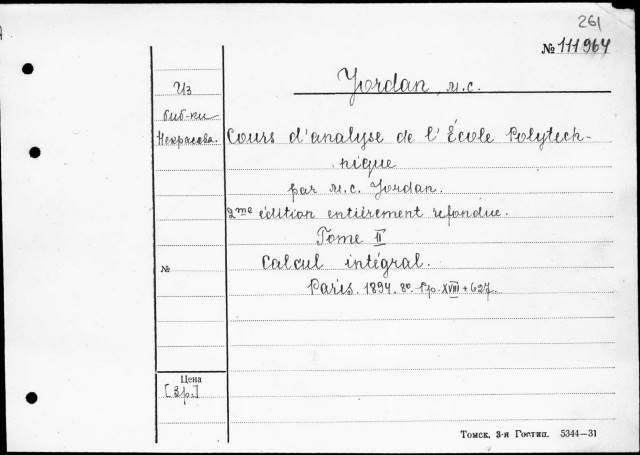 261
№ 111964
Jordan, M.C.
Из
биб-ки
Некрасова.
Cours d'analyse de l'École Polytech-
nique
par M.C. Jordan.
2me édition entièrement refondue.
Tome II
Calcul intégral.
№
Paris. 1894. 8º. Стр. XVIII + 627.
Цена
[3р.]
Томск, 3-я Гостип. 5344—31